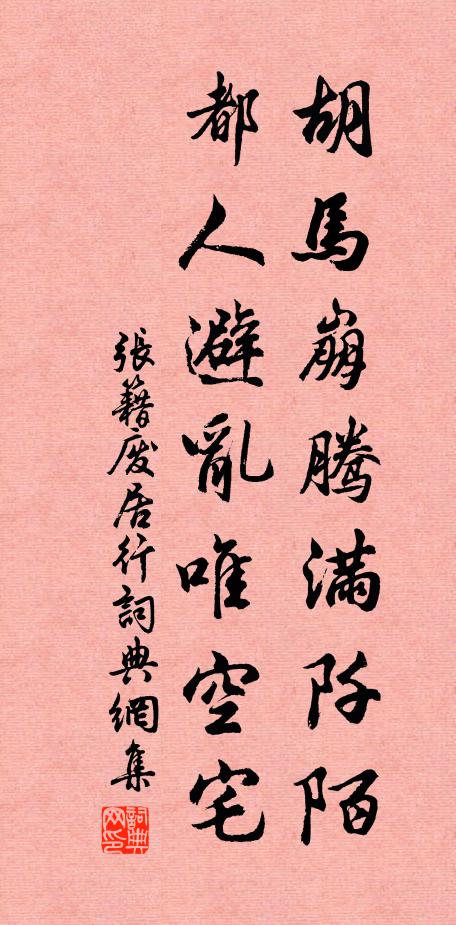 胡馬崩騰滿阡陌
都人避亂唯空宅
張籍廢居行詞典網集
詞典网印